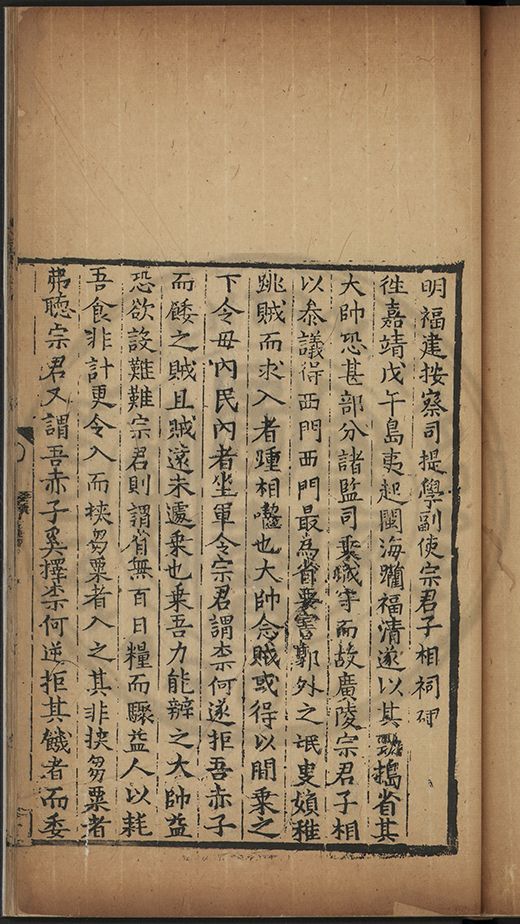 明福建按察司提學副使宗君子相祠碑
徃嘉靖戊午島夷起閩海躪福清遂以其 搗省其
大帥恐甚部分諸監司乘城守而故廣陵宗君子相
以叅議得西門西門最為省要害郭外之氓叟媍稚
跳賊而求入者踵相 也大帥念賊或得以間乗之
下令毋內民內者坐軍令宗君謂柰何遂拒吾赤子
而餧之賊且賊遠未遽乗也乗吾力能辦之大帥益
恐欲設難難宗君則謂省無百日糧而驟益人以耗
吾食非計更令入而挾芻粟者入之其非挾芻粟者
弗聽宗君又謂吾赤子奚擇柰何逆拒其饑者而委